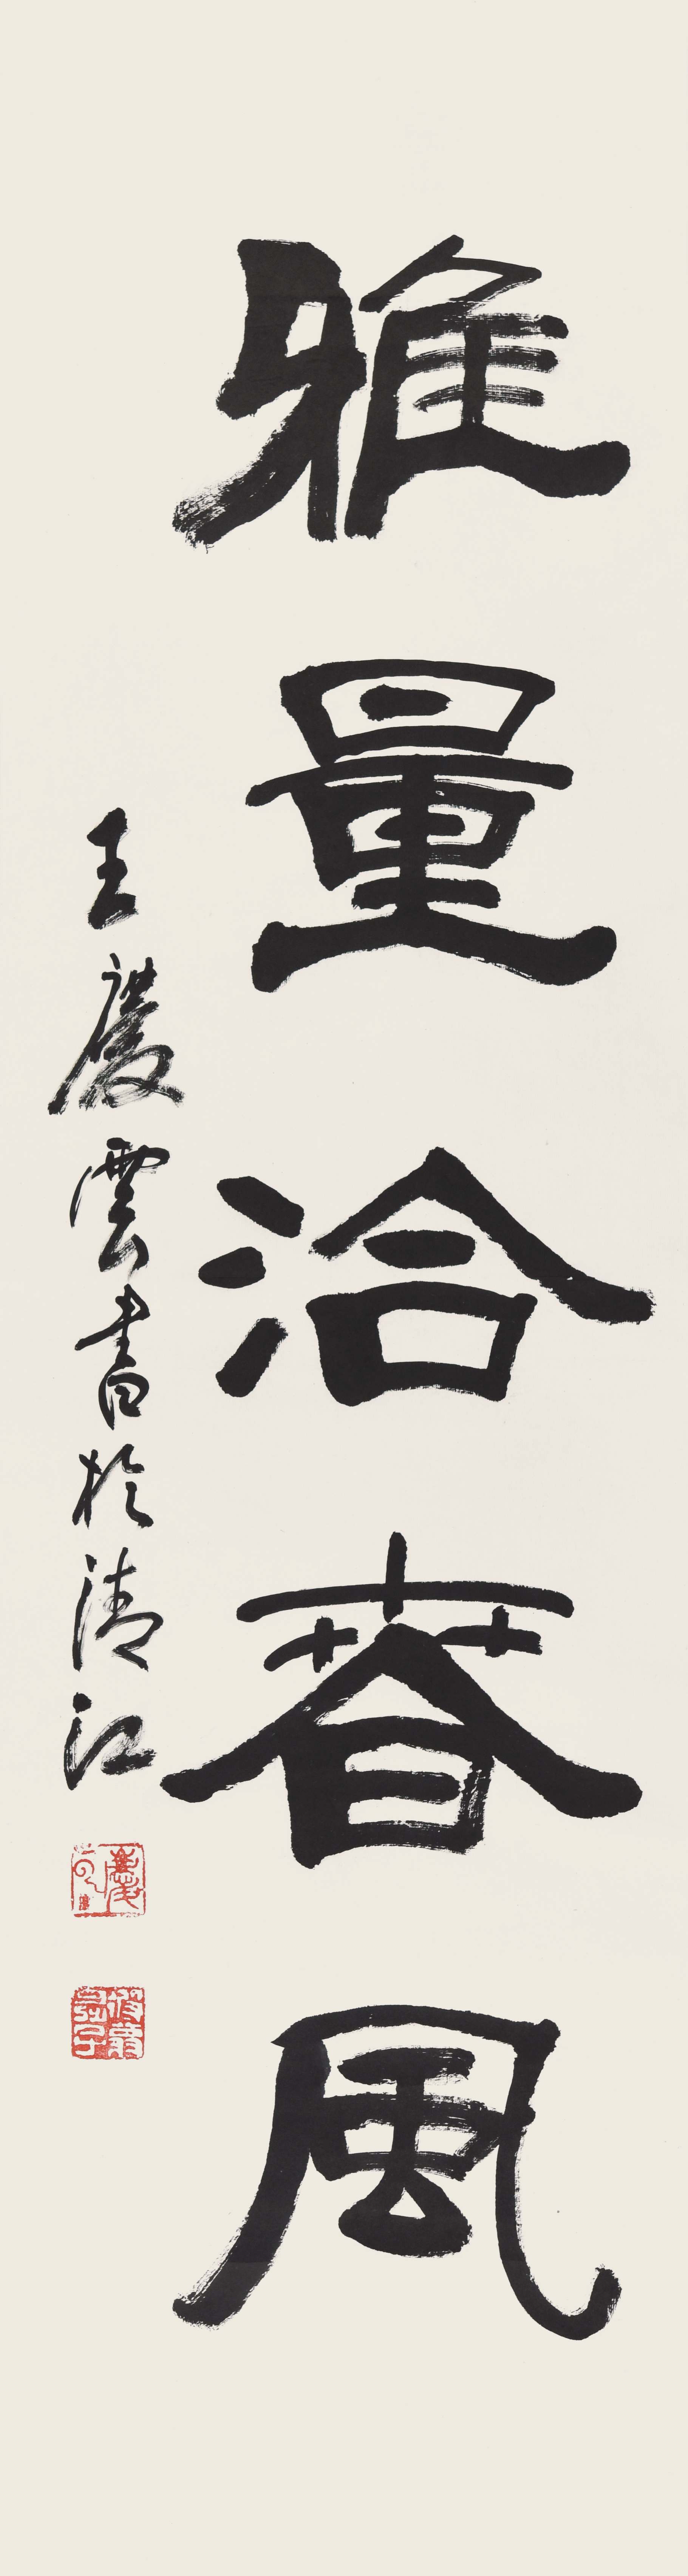 雅量洽春風
王慶雲書於清江